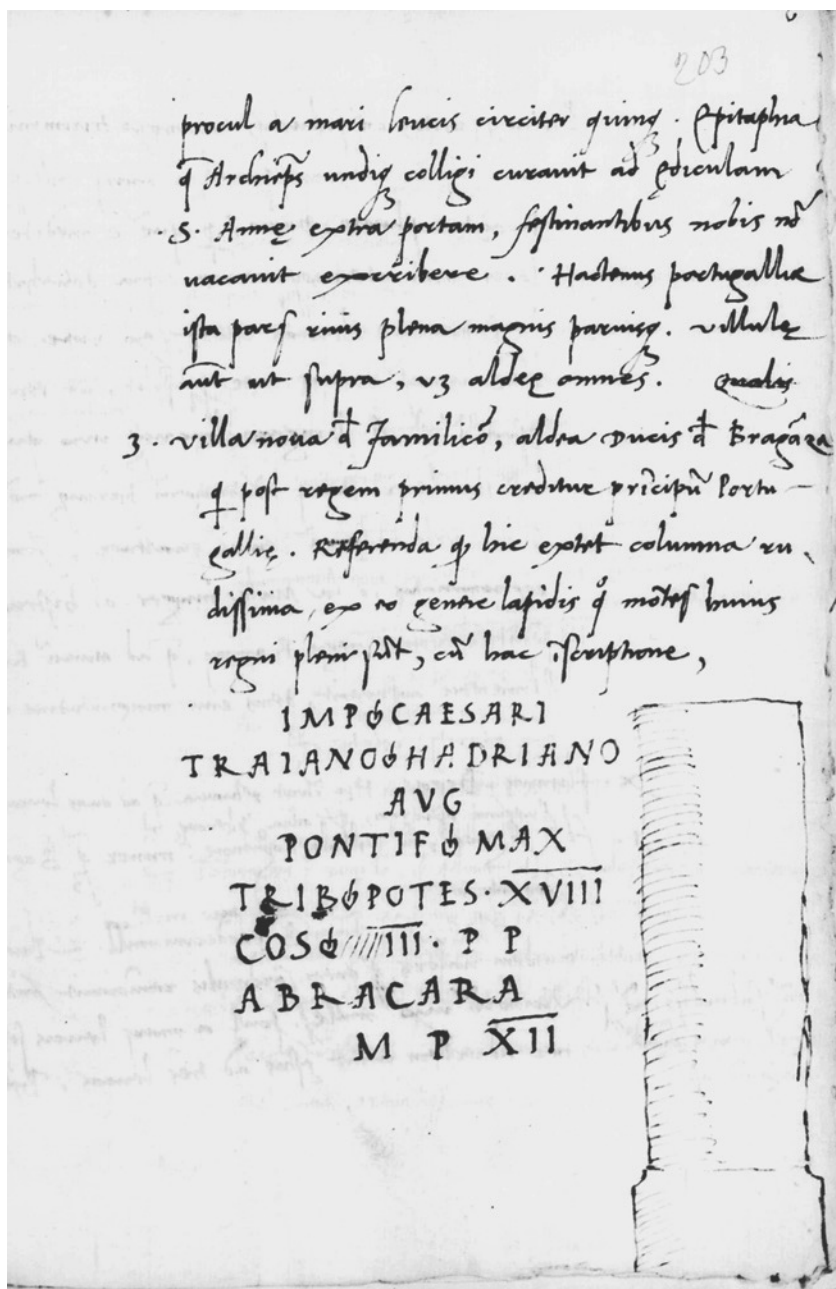 203
procul a mari leucis circiter quinqꝫ. Epitaphia
q̄ Archiep̄s undiqꝫ colligi curavit ad ędiculam
S. Annę extra portam, festinantibus nobis nō
vacavit exscribere. Hactenus portugalliæ
ista pars rivis plena magnis parvisqꝫ. villulę
aūt ut supra, vꝫ aldeę omnes. Qualis
3. Villa nova đ Familicō, aldea Ducis đ Bragāza
q̇ post regem primus creditur prīcipū Portu-
gallię. Referenda ꝙ hic extet columna ru
dissima, ex eo genere lapidis qͦ mōtes huius
regni pleni sūt, cū hac īscriptione,
IMP CAESARI
TRAIANO HADRIANO
AVG
PONTIF MAX
TRIB POTES · X̅V̅I̅I̅I̅
COS /////I̅I̅I̅ · P P
A BRACARA
M P X̅I̅I̅